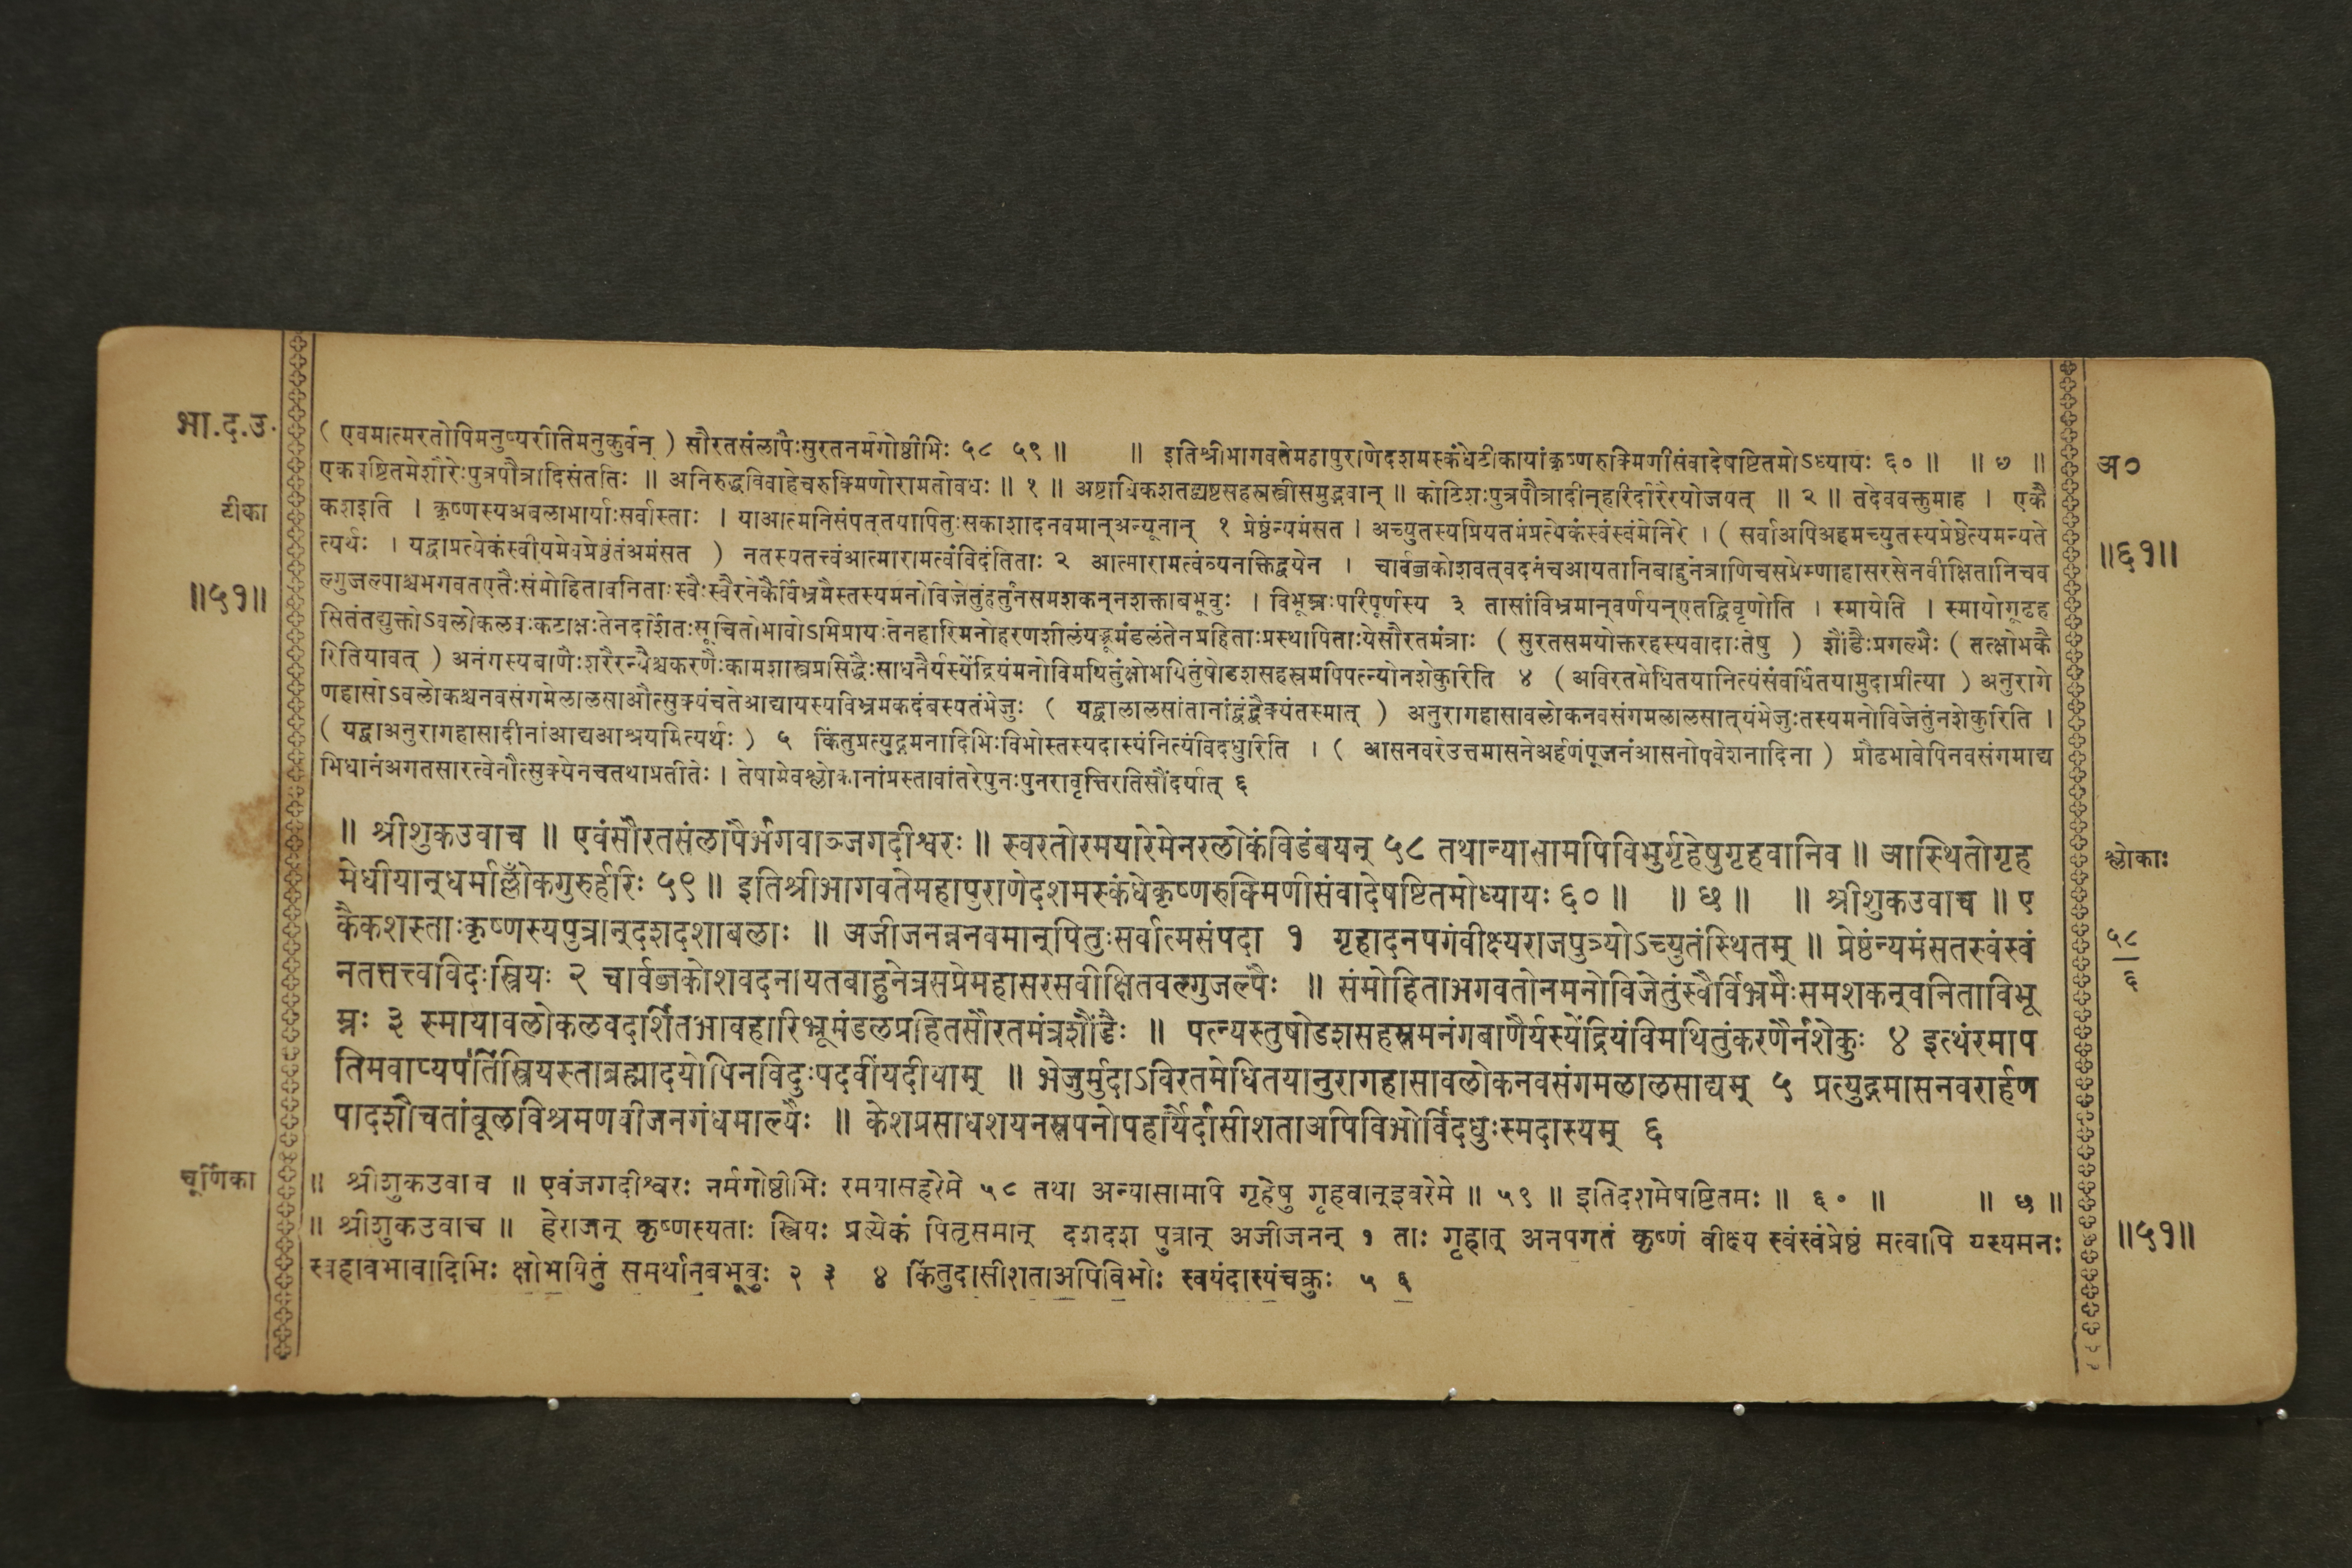 भा.द.उ.
टीका
॥५१॥
( एवमात्मरतोपिमनुष्यरीतिमनुकुर्वन् ) सौरतसंलापैःसुरतनर्मगोष्ठीभिः ५८ ५९ ॥ ॥ इतिश्रीभागवतेमहापुराणेदशमस्कंधेटीकायांकृष्णरुक्मिणीसंवादेषष्टितमोऽध्यायः ६० ॥ ॥ ७ ॥
एकषष्टितमेशौरेःपुत्रपौत्रादिसंततिः ॥ अनिरुद्धविवाहेचरुक्मिणोरामतोवधः ॥ १ ॥ अष्टाधिकशतद्व्यष्टसहस्रस्त्रीसमुद्भवान् ॥ कोटिशःपुत्रपौत्रादीन्हरिर्दारैरयोजयत् ॥ २ ॥ तदेववक्तुमाह । एकै
कशइति । कृष्णस्यअबलाभार्याःसर्वास्ताः । याआत्मनिसंपत्तयापितुःसकाशादनवमान्अन्यूनान् १ प्रेष्ठंन्यमंसत । अच्युतस्यप्रियतमंप्रत्येकंस्वंस्वंमेनिरे । ( सर्वाअपिअहमच्युतस्यप्रेष्ठेत्यमन्यते
त्यर्थः । यद्वाप्रत्येकंस्वीयमेवप्रेष्ठंतंअमंसत ) नतस्यतत्त्वंआत्मारामत्वंविदंतिताः २ आत्मारामत्वंव्यनक्तिद्वयेन । चार्वब्जकोशवत्वदनंचआयतानिबाहुनेत्राणिचसप्रेम्णाहासरसेनवीक्षितानिचव
ल्गुजल्पाश्चभगवतएतैःसंमोहितावनिताःस्वैःस्वैरनेकैर्विभ्रमैस्तस्यमनोविजेतुंहर्तुंनसमशकन्नशक्ताबभूवुः । विभूम्नःपरिपूर्णस्य ३ तासांविभ्रमान्वर्णयन्एतद्विवृणोति । स्मायेति । स्मायोगूढह
सितंतद्युक्तोऽवलोकलवःकटाक्षःतेनदर्शितःसूचितोभावोऽभिप्रायःतेनहारिमनोहरणशीलंयद्भ्रूमंडलंतेनप्रहिताःप्रस्थापिताःयेसौरतमंत्राः ( सुरतसमयोक्तरहस्यवादाःतेषु ) शौंडैःप्रगल्भैः ( तत्क्षोभकै
रितियावत् ) अनंगस्यबाणैःशरैरन्यैश्चकरणैःकामशास्त्रप्रसिद्धैःसाधनैर्यस्येंद्रियंमनोविमथितुंक्षोभयितुंषोडशसहस्रमपिपत्न्योनशेकुरिति ४ ( अविरतमेधितयानित्यंसंवर्धितयामुदाप्रीत्या ) अनुरागे
णहासोऽवलोकश्चनवसंगमेलालसाऔत्सुक्यंचतेआद्यायस्यविभ्रमकदंबस्यतंभेजुः ( यद्वालालसांतानांद्वंद्वैक्यंतस्मात् ) अनुरागहासावलोकनवसंगमलालसात्यंभेजुःतस्यमनोविजेतुंनशेकुरिति ।
( यद्वाअनुरागहासादीनांआद्यआश्रयमित्यर्थः ) ५ किंतुप्रत्युद्गमनादिभिःविभोस्तस्यदास्यंनित्यंविदधुरिति । ( आसनवरेउत्तमासनेअर्हणंपूजनंआसनोपवेशनादिना ) प्रौढभावेपिनवसंगमाद्य
भिधानंअगतसारत्वेनौत्सुक्येनचतथाप्रतीतेः । तेषामेवश्लोकानांप्रस्तावांतरेपुनःपुनरावृत्तिरतिसौंदर्यात् ६
॥ श्रीशुकउवाच ॥ एवंसौरतसंलापैर्भगवाञ्जगदीश्वरः ॥ स्वरतोरमयारेमेनरलोकंविडंबयन् ५८ तथान्यासामपिविभुर्गृहेषुगृहवानिव ॥ आस्थितोगृह
मेधीयान्धर्माल्लोँकगुरुर्हरिः ५९ ॥ इतिश्रीभागवतेमहापुराणेदशमस्कंधेकृष्णरुक्मिणीसंवादेषष्टितमोध्यायः ६० ॥ ॥ ७ ॥ ॥ श्रीशुकउवाच ॥ ए
कैकशस्ताःकृष्णस्यपुत्रान्दशदशाबलाः ॥ अजीजनन्ननवमान्पितुःसर्वात्मसंपदा १ गृहादनपगंवीक्ष्यराजपुत्र्योऽच्युतंस्थितम् ॥ प्रेष्ठंन्यमंसतस्वंस्वं
नतत्तत्त्वविदःस्त्रियः २ चार्वब्जकोशवदनायतबाहुनेत्रसप्रेमहासरसवीक्षितवल्गुजल्पैः ॥ संमोहिताभगवतोनमनोविजेतुंस्वैर्विभ्रमैःसमशकन्वनिताविभू
म्नः ३ स्मायावलोकलवदर्शितभावहारिभ्रूमंडलप्रहितसौरतमंत्रशौंडैः ॥ पत्न्यस्तुषोडशसहस्रमनंगबाणैर्यस्येंद्रियंविमथितुंकरणैर्नशेकुः ४ इत्थंरमाप
तिमवाप्यपतिंस्त्रियस्ताब्रह्मादयोपिनविदुःपदवींयदीयाम् ॥ भेजुर्मुदाऽविरतमेधितयानुरागहासावलोकनवसंगमलालसाद्यम् ५ प्रत्युद्गमासनवरार्हण
पादशौचतांबूलविश्रमणवीजनगंधमाल्यैः ॥ केशप्रसाधशयनस्नपनोपहार्यैर्दासीशताअपिविभोर्विदधुःस्मदास्यम् ६
चूर्णिका
॥ श्रीशुकउवाच ॥ एवंजगदीश्वरः नर्मगोष्ठीभिः रमयासहरेमे ५८ तथा अन्यासामपि गृहेषु गृहवान्इवरेमे ॥ ५९ ॥ इतिदशमेषष्टितमः ॥ ६० ॥ ॥ ७ ॥
॥ श्रीशुकउवाच ॥ हेराजन् कृष्णस्यताः स्त्रियः प्रत्येकं पितृसमान् दशदश पुत्रान् अजीजनन् १ ताः गृहात् अनपगतं कृष्णं वीक्ष्य स्वंस्वंप्रेष्ठं मत्वापि यस्यमनः
स्वहावभावादिभिः क्षोभयितुं समर्थानबभूवुः २ ३ ४ किंतुदासीशताअपिविभोः स्वयंदास्यंचक्रुः ५ ६
अ०
॥६१॥
श्लोकाः
५८
६
॥५१॥